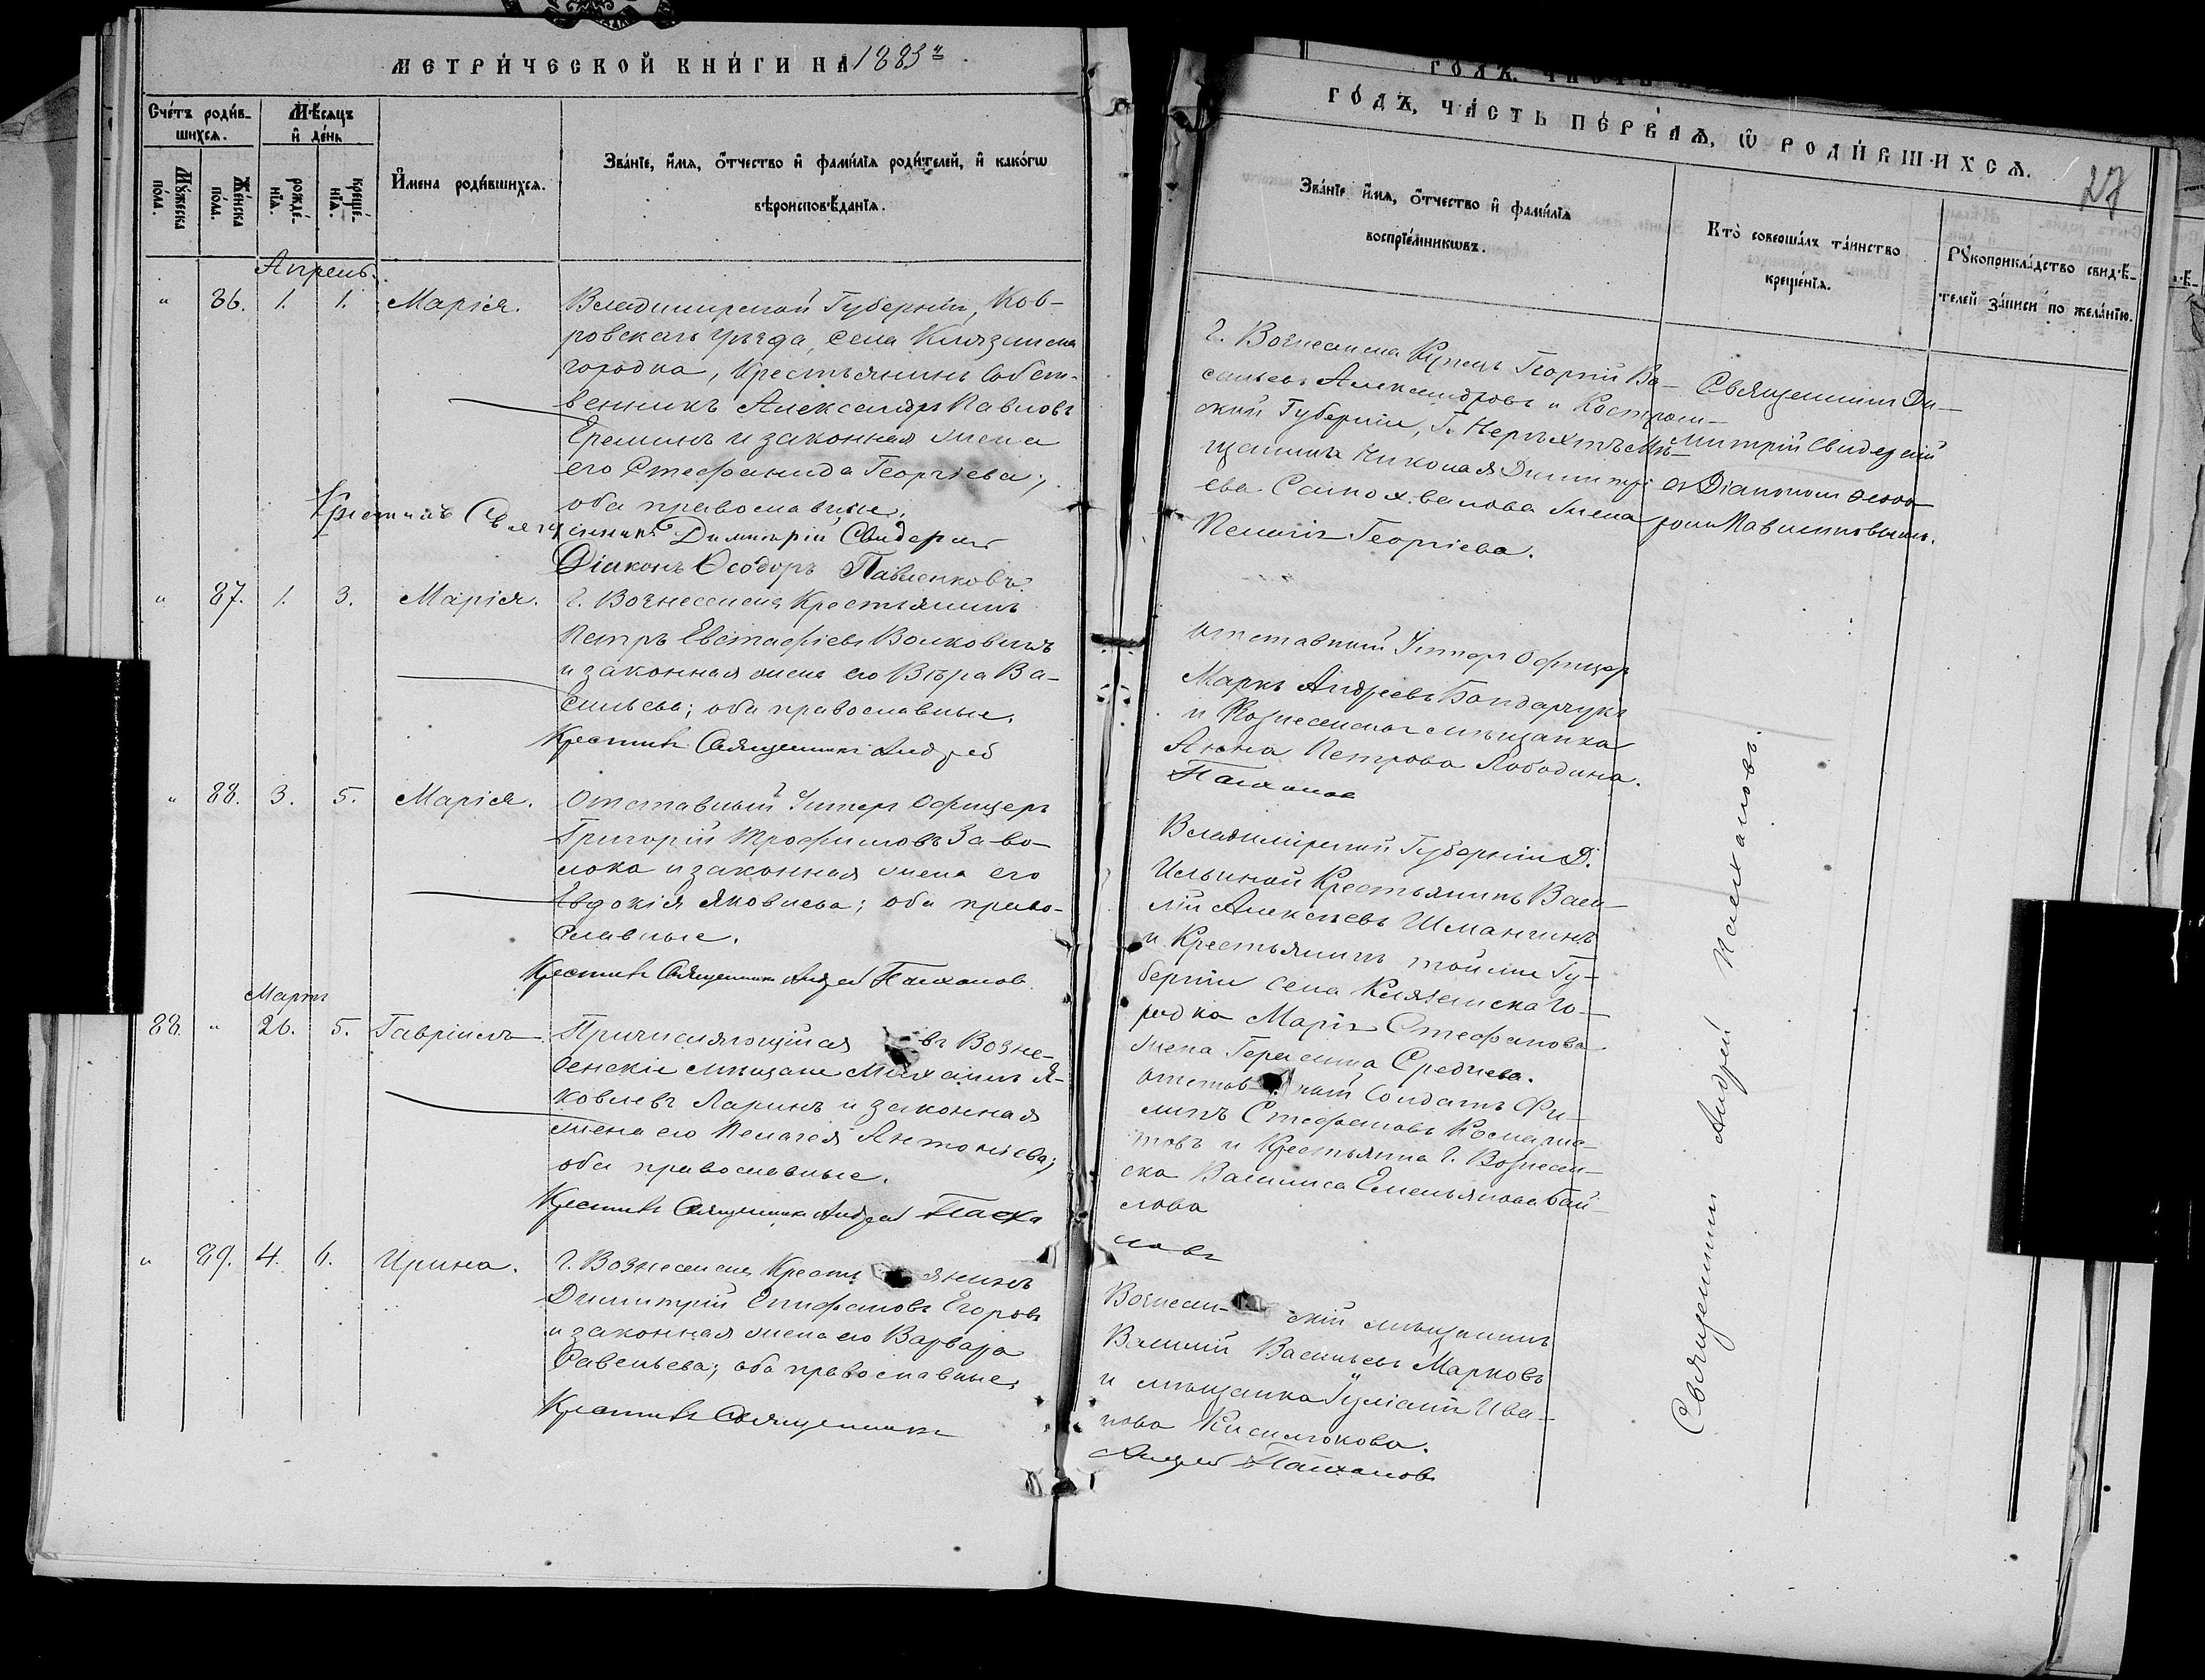 МЕТРИ́ЧЕСКОЙ КНИ́ГИ НА 1883й
Сче́тъ роди́в-
шихсѧ.
Мѣ́сѧцъ
и҆ де́нь
И҆мена роди́вшихсѧ.
Зва́нїе, и҆́мѧ, ѻ҆́тчество и҆ фами́лїѧ роди́телей, и҆ како́гѡ
вѣроисповѣ́данїѧ.
Мꙋ́жеска
по́ла.
Же́нска
по́ла.
рожде́-
нїѧ.
креще́-
нїѧ.
Апрель.
" 86. 1. 1. Марія. Владимирской Губерніи, Ков-
ровскаго уѣзда, села Клязьмска
городка, Крестьянинъ собст-
венникъ Александръ Павловъ
Ереминъ и законная жена
его Стефанида Георгіева;
оба православные.
Крестилъ Священникъ Димитрій Свидерскій
Діаконъ Ѳеодоръ Павленковъ
" 87. 1. 3. Марія. г. Вознесенска Крестьянинъ
Петръ Евстафіевъ Волковинъ
и законная жена его Вѣра Ва-
сильева; оба православные.
Крестилъ Священникъ Андрей
" 88. 3. 5. Марія. Отставный Унтеръ Офицеръ
Григорій Трофимовъ Заво-
лока и законная жена его
Евдокія Яковлева; оба право-
славные.
Крестилъ Священникъ Андрей Палхаловъ
Мартъ
88. " 26. 5. Гавріилъ. Причисляющійся въ Возне-
сенскіе мѣщане Михаилъ Я-
ковлевъ Ларинъ и законная
жена его Пелагея Антоніева;
оба православные.
Крестилъ Священникъ Андрей
" 89. 4. 6. Ирина. г. Вознесенска Крестьянинъ
Димитрій Епифановъ Егоровъ
и законная жена его Варвара
Савельева; оба православные.
Крестилъ Священникъ
ГО́ДЪ, ЧА́СТЬ ПЕ́РВАѦ, Ѡ҆ РОДИ́ВШИХСѦ.
27
Зва́нїе и҆́мѧ, ѻ҆́тчество и҆ фами́лїѧ
воспрїе́мникѡвъ.
Кто̀ соверша́лъ та́инство
креще́нїѧ.
Рꙋкоприкла́дство свидѣ́-
телей за́писи по жела́нїю.
г. Вознесенска Купецъ Георгій Ва-
сильевъ Александровъ и Костром-
ской Губерніи, г. Нерехтъ мѣ-
щанина Николая Димитрі-
ева Самохвалова жена
Пелагія Георгіева.
Священникъ Ди-
митрій Свидерскій
съ Діакономъ Ѳеодо-
ромъ Павленковымъ.
отставный Унтеръ Офицеръ
Маркъ Андреевъ Бондарчукъ
и Вознесенская мѣщанка
Анна Петрова Лободина.
Палхаловъ
Владимірской Губерніи Д.
Ильиной Крестьянинъ Васи-
лій Алексѣевъ Шмангинъ
и Крестьянинъ той же Гу-
берніи села Клязьмска Го-
родка Марія Стефанова
жена Герасима Среднева.
отставный Солдатъ Фи-
липъ Стефановъ
и Крестьянка г. Вознесен-
ска Василиса Емельянова Бай-
лова
ловъ
Вознесенскій мѣщанинъ
Василій Васильевъ Марковъ
и мѣщанка Іуліанія Ива-
нова Кисилюкова.
Андрей Палхаловъ
Священникъ Андрей Палхаловъ.